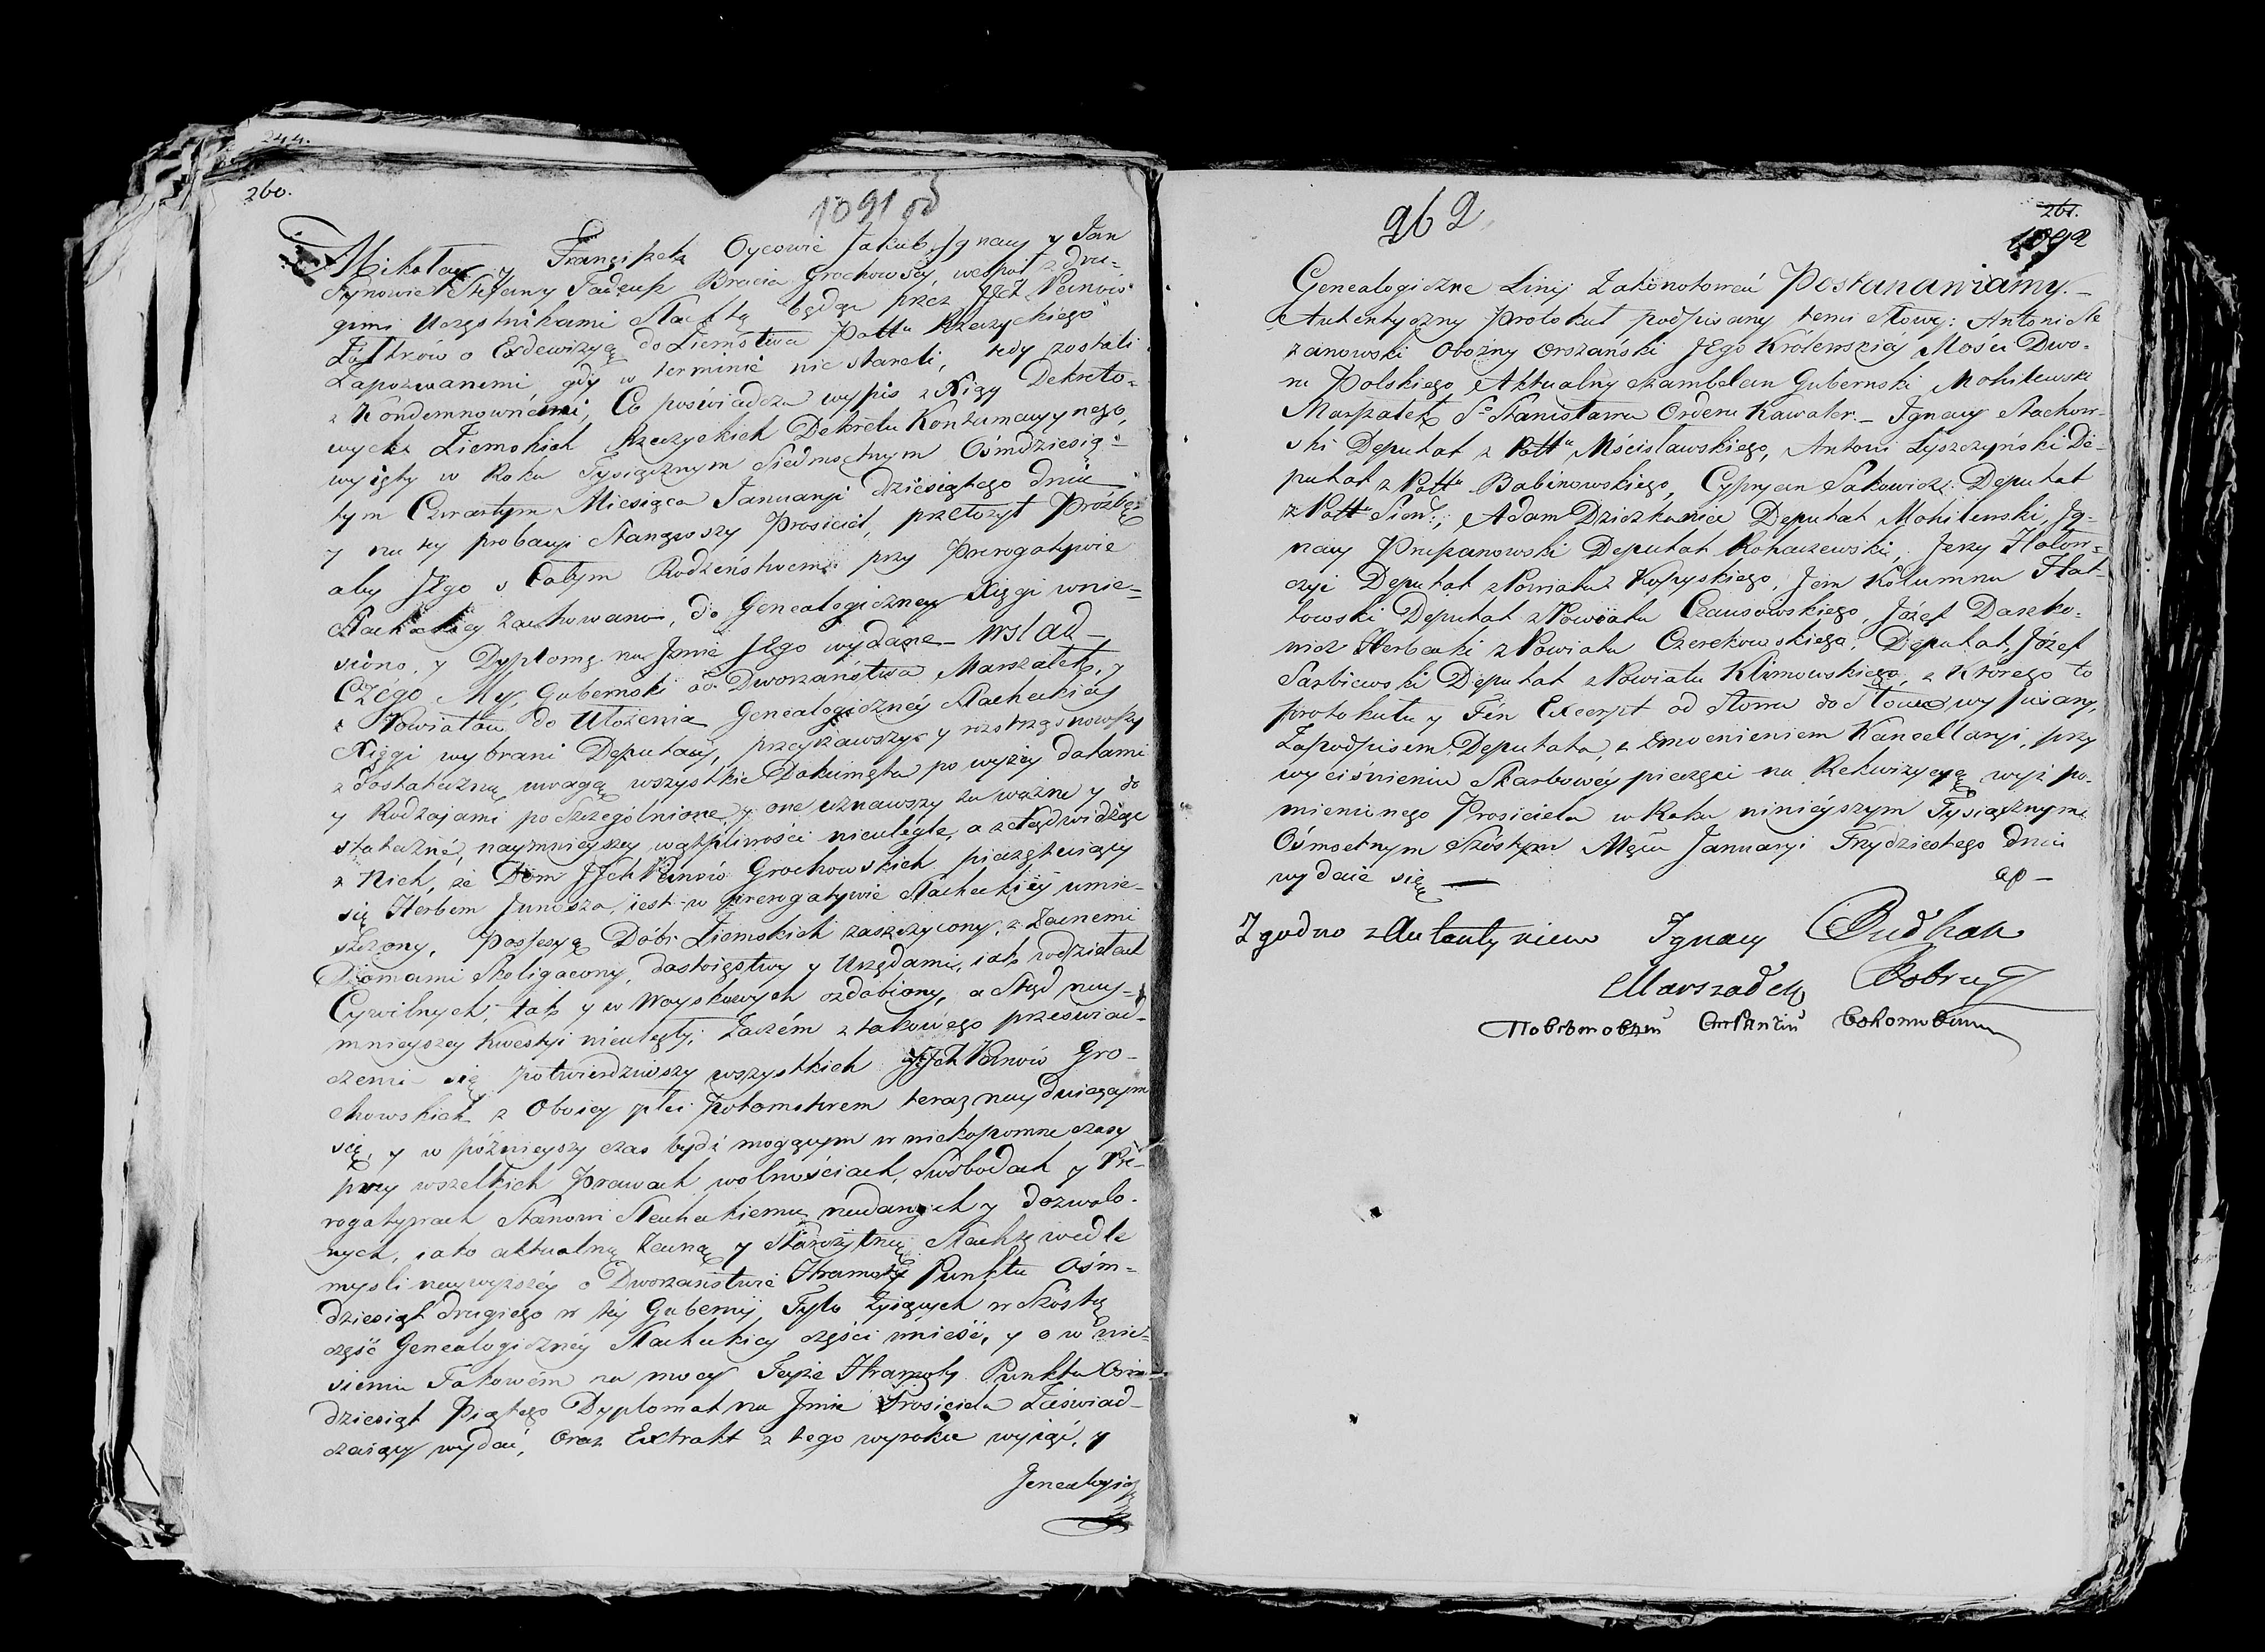 244.
260.
1091 od
Mikołay y Franciszek Oycowie Jakub Jgnacy y Jan
Synowie Stefany Tadeusz Bracia Grochowscy, wespoł z dru=
gimi Uczęstnikami Szlachtą będąc przez JJch Panow
Zastrów o Exdewizyą do Ziemstwa Pottu Rzeczyckiego
Zapozwanemi gdy w terminie nie stareli, tedy zostali
z Kondemnownemi, Co poświadcza wypis z Xiąg Dekreto=
wych Ziemskich Rzeczyckich Dekretu Kontumacyynego,
wyięty w Roku Tysiącznym Siedmsetnym Ośmdziesią=
tym Czwartym Miesiąca Januaryi dziesiątego dnia
y na tey probacyi Stanąwszy Prosiciel, przełożył Prózbę
aby Jego s Całym Rodzeństwem przy Prerogatywie
Szlacheckiey zachowano, do Genealogiczney Xięgi wnie=
siono, y Dyplomę na Jmie Jego wydane – wslad –
Czego My, Gubernski od Dworzaństwa Marszałek, y
z Powiatow do Ułożenia Genealogiczney Szlacheckiey
Xięgi wybrani Deputaci, przeyzawszy y rozstrząsnowszy
z dostateczną uwagą wszystkie Dokumęta po wyżey datami
y Rodzajami poszczególnione, y one uznawszy za ważne y do
stateczné, naymnieyszey wątpliwości nieuległe, a ztąd widząc
z Nich, że Dom JJch Panów Grochowskich pieczętuiący
się Herbem Junosza, iest w prerogatywie Szlacheckiey umie-
szczony, Possesyą Dóbr Ziemskich zaszczycony, z Zacnemi
Domami Skoligacony, dostoięstwy y Urzędami, iak w działach
Cywilnych, tak y w Woyskowych ozdobiony, a stąd nay-
mnieyszey Kwestyi nieuległy; Zaczém z takowego przeswiad-
czenia się potwierdziwszy wszystkich JJch Panów Gro-
chowskich z Oboiey płci Potomstwem teraz naydującym
się, y w póznieyszy czas bydź mogącym w niekopomne czasy
przy wszelkich Prawach wolnościach, Swobodach y Pre-
rogatywach Stanowi Szlacheckiemu nadanych y dozwolo-
nych, iako aktualną Zacną y Starożytną Szlachtę wedle
mysli naywyższéy o Dworzaństwie Hramoty Punktu Ośm=
dziesiąt drugiego w tey Gubernij Tyło Zyiących w Szóstą
część Genealogicznéy Szlacheckiey części wnieść, y o wnie=
sieniu Takowém na mocy Teyże Hramoty Punktu Ośm
dziesiąt Piątego Dyplomat na Jmie Prosiciela Zaświad-
czaiący wydać, Oraz Extrakt z tego wyroku wyiąć, y
Jenealogią
262.
261.
1092
Genealogiczne Linij Zakonotować Postanawiamy. –
Autentyczny Protokuł podpisany temi słowy: Antoni Ste
zanowski Obożny Orszański JEgo Królewskiey Mosci Dwo-
ru Polskiego Aktualny Szambelan Gubernski Mohilewski
Marszałek So Stanisława Orderu Kawaler. – Jgnacy Stachow-
ski Deputat z Pottu Mścisławskiego, Antoni Łyszczyński De-
putat z Pottu Babinowskiego, Cypryan Sakowicz Deputat
z Pottu Sień:, Adam Dziczkaniec Deputat Mohilewski, Jg-
nacy Przepanowski Deputat Rohaczewski, Jerzy Hołow=
czyc Deputat z Powiatu Kopyskiego, Jan Kolumna Hat-
towski Deputat z Powiatu Czausowskiego, Józef Daszko-
wicz Herbacki z Powiatu Czerekowskiego, Deputat, Józef
Sarbiewski Deputat z Powiatu Klimowskiego, z Którego to
protokułu y Tén Excerpt od słowa do słowa wypisany,
Zapodpisem Deputata, z zmocnieniem Kancellaryi, przy
wyciśnieniu Skarbowéy pieczęci na Rekwizycyą wyż po-
mienionego Prosiciela w Roku ninieyszym Tysiącznym
Ośmsetnym Szóstym Męca Januaryi Trzydziestego dnia
wydaie się –
ap –
Zgodno z Autentykiem Ignacy
Marszałek